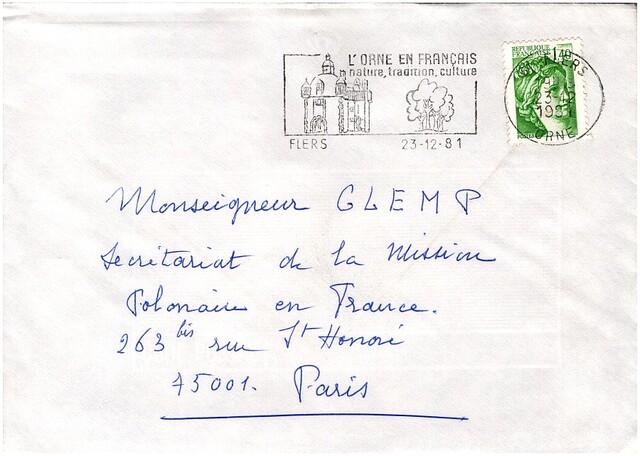 L'ORNE EN FRANÇAIS
nature, tradition, culture
FLERS 23-12-81
RÉPUBLIQUE
FRANÇAISE
FLERS
23-12
1981
ORNE
Monseigneur GLEMP
Secrétariat de la Mission
Polonaise en France.
263 bis rue St Honoré
75001. Paris